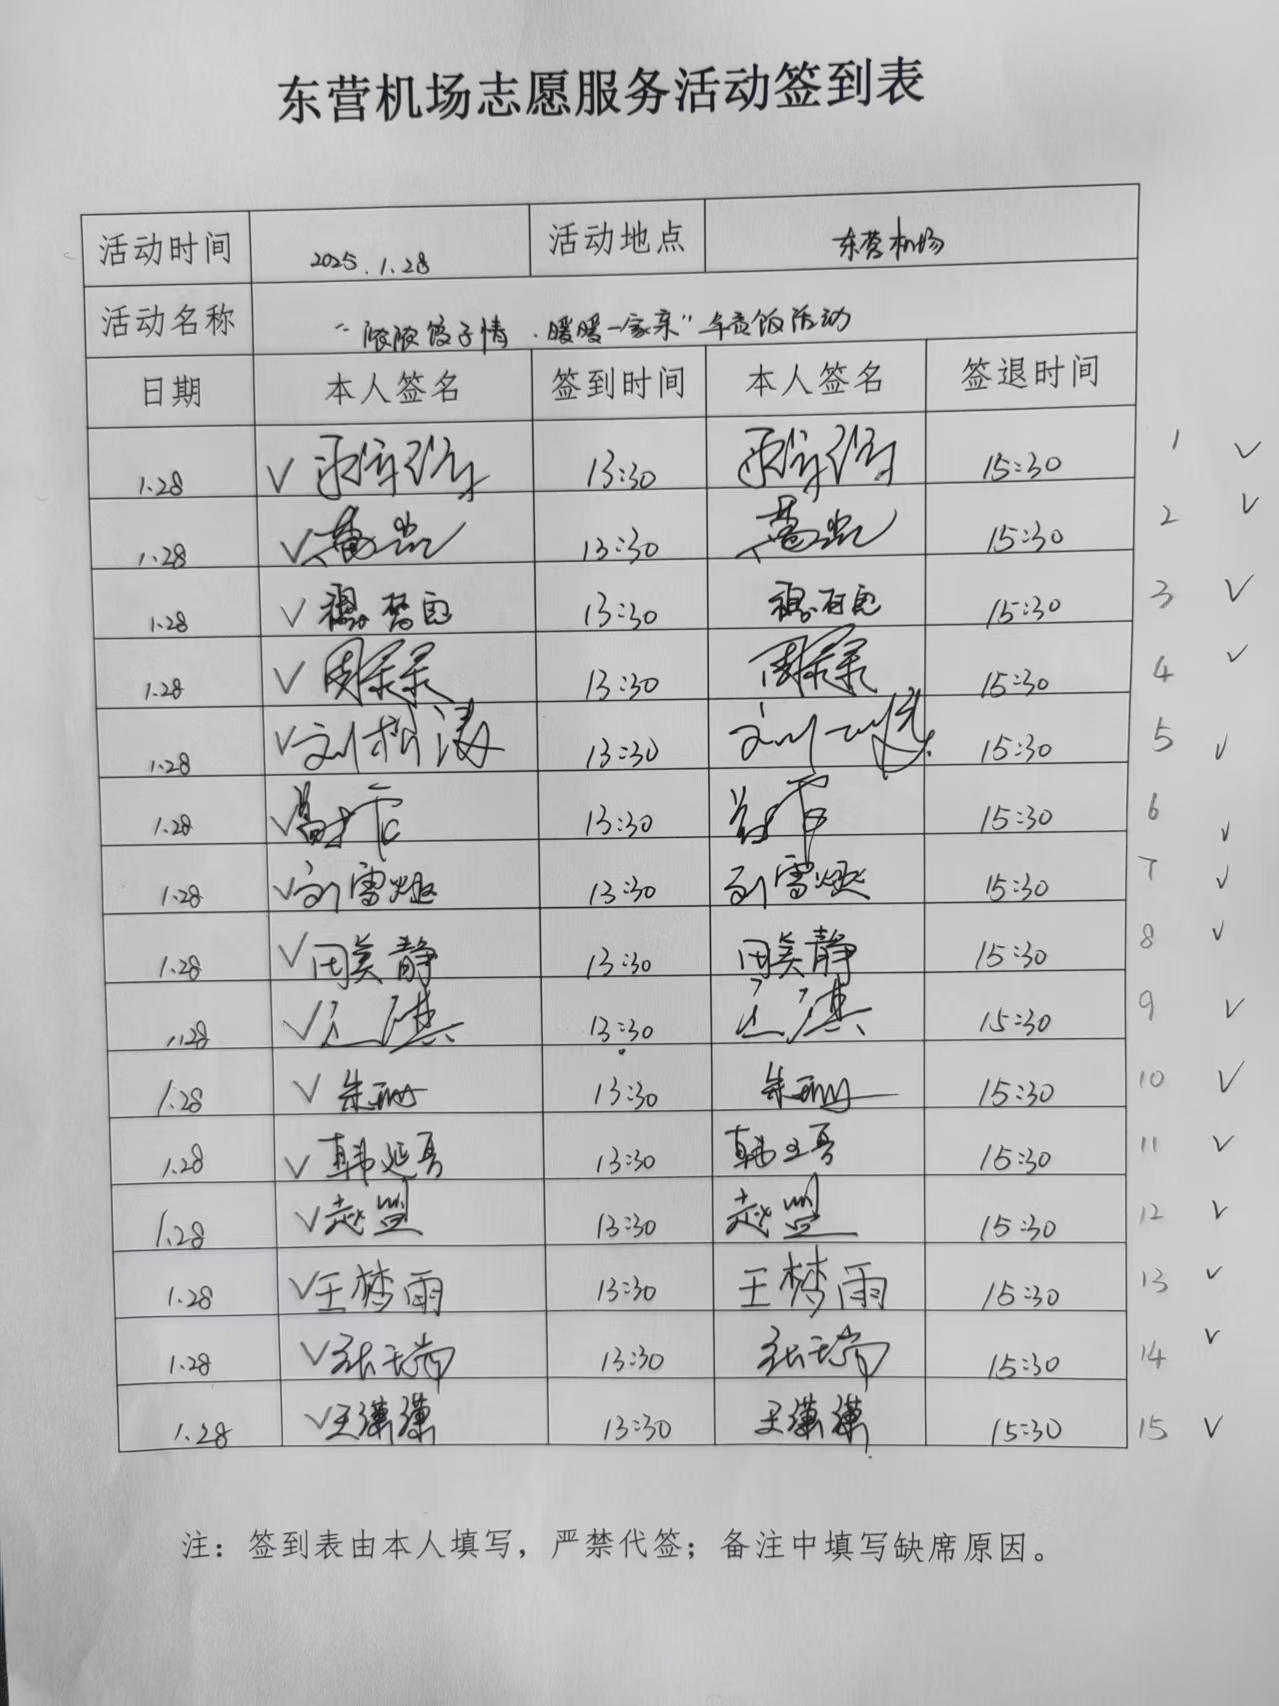 东营机场志愿服务活动签到表
活动时间 2025.1.28 活动地点 东营机场
活动名称 “浓浓饺子情·暖暖一家亲”年夜饭活动
日期 本人签名 签到时间 本人签名 签退时间
1.28 ✓ 13:30 15:30 1 ✓
1.28 ✓ 13:30 15:30 2 ✓
1.28 ✓ 13:30 15:30 3 ✓
1.28 ✓ 周 13:30 周 15:30 4 ✓
1.28 ✓ 刘松涛 13:30 刘 15:30 5 ✓
1.28 ✓ 13:30 15:30 6 ✓
1.28 ✓ 刘雪 13:30 刘雪 15:30 7 ✓
1.28 ✓ 田美静 13:30 田美静 15:30 8 ✓
1.28 ✓ 13:30 15:30 9 ✓
1.28 ✓ 朱珊 13:30 朱珊 15:30 10 ✓
1.28 ✓ 韩延 13:30 韩 15:30 11 ✓
1.28 ✓ 赵盟 13:30 赵盟 15:30 12 ✓
1.28 ✓ 王梦雨 13:30 王梦雨 15:30 13 ✓
1.28 ✓ 张瑞 13:30 张瑞 15:30 14 ✓
1.28 ✓ 王潇潇 13:30 王潇潇 15:30 15 ✓
注：签到表由本人填写，严禁代签；备注中填写缺席原因。